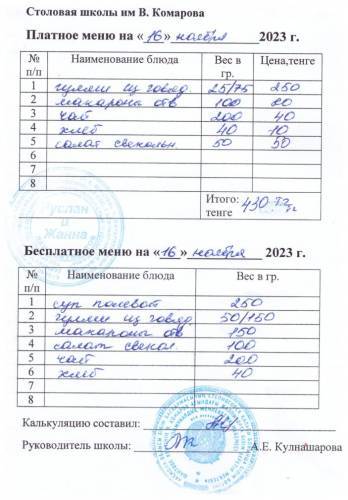 Столовая школы им В. Комарова
Платное меню на «16» ноября 2023 г.
№ п/п Наименование блюда Вес в гр. Цена,тенге
1 гуляш из говяд. 25/75 250
2 макароны отв 100 80
3 чай 200 40
4 хлеб 40 10
5 салат свекольн. 50 50
6
7
8
Итого: 430 тг
тенге
Руслан
и
Жанна
Бесплатное меню на «16» ноября 2023 г.
№ п/п Наименование блюда Вес в гр.
1 суп полевой 250
2 гуляш из говяд 50/150
3 макароны отв 150
4 салат свекол. 100
5 чай 200
6 хлеб 40
7
8
Калькуляцию составил:
Руководитель школы: А.Е. Кулнашарова